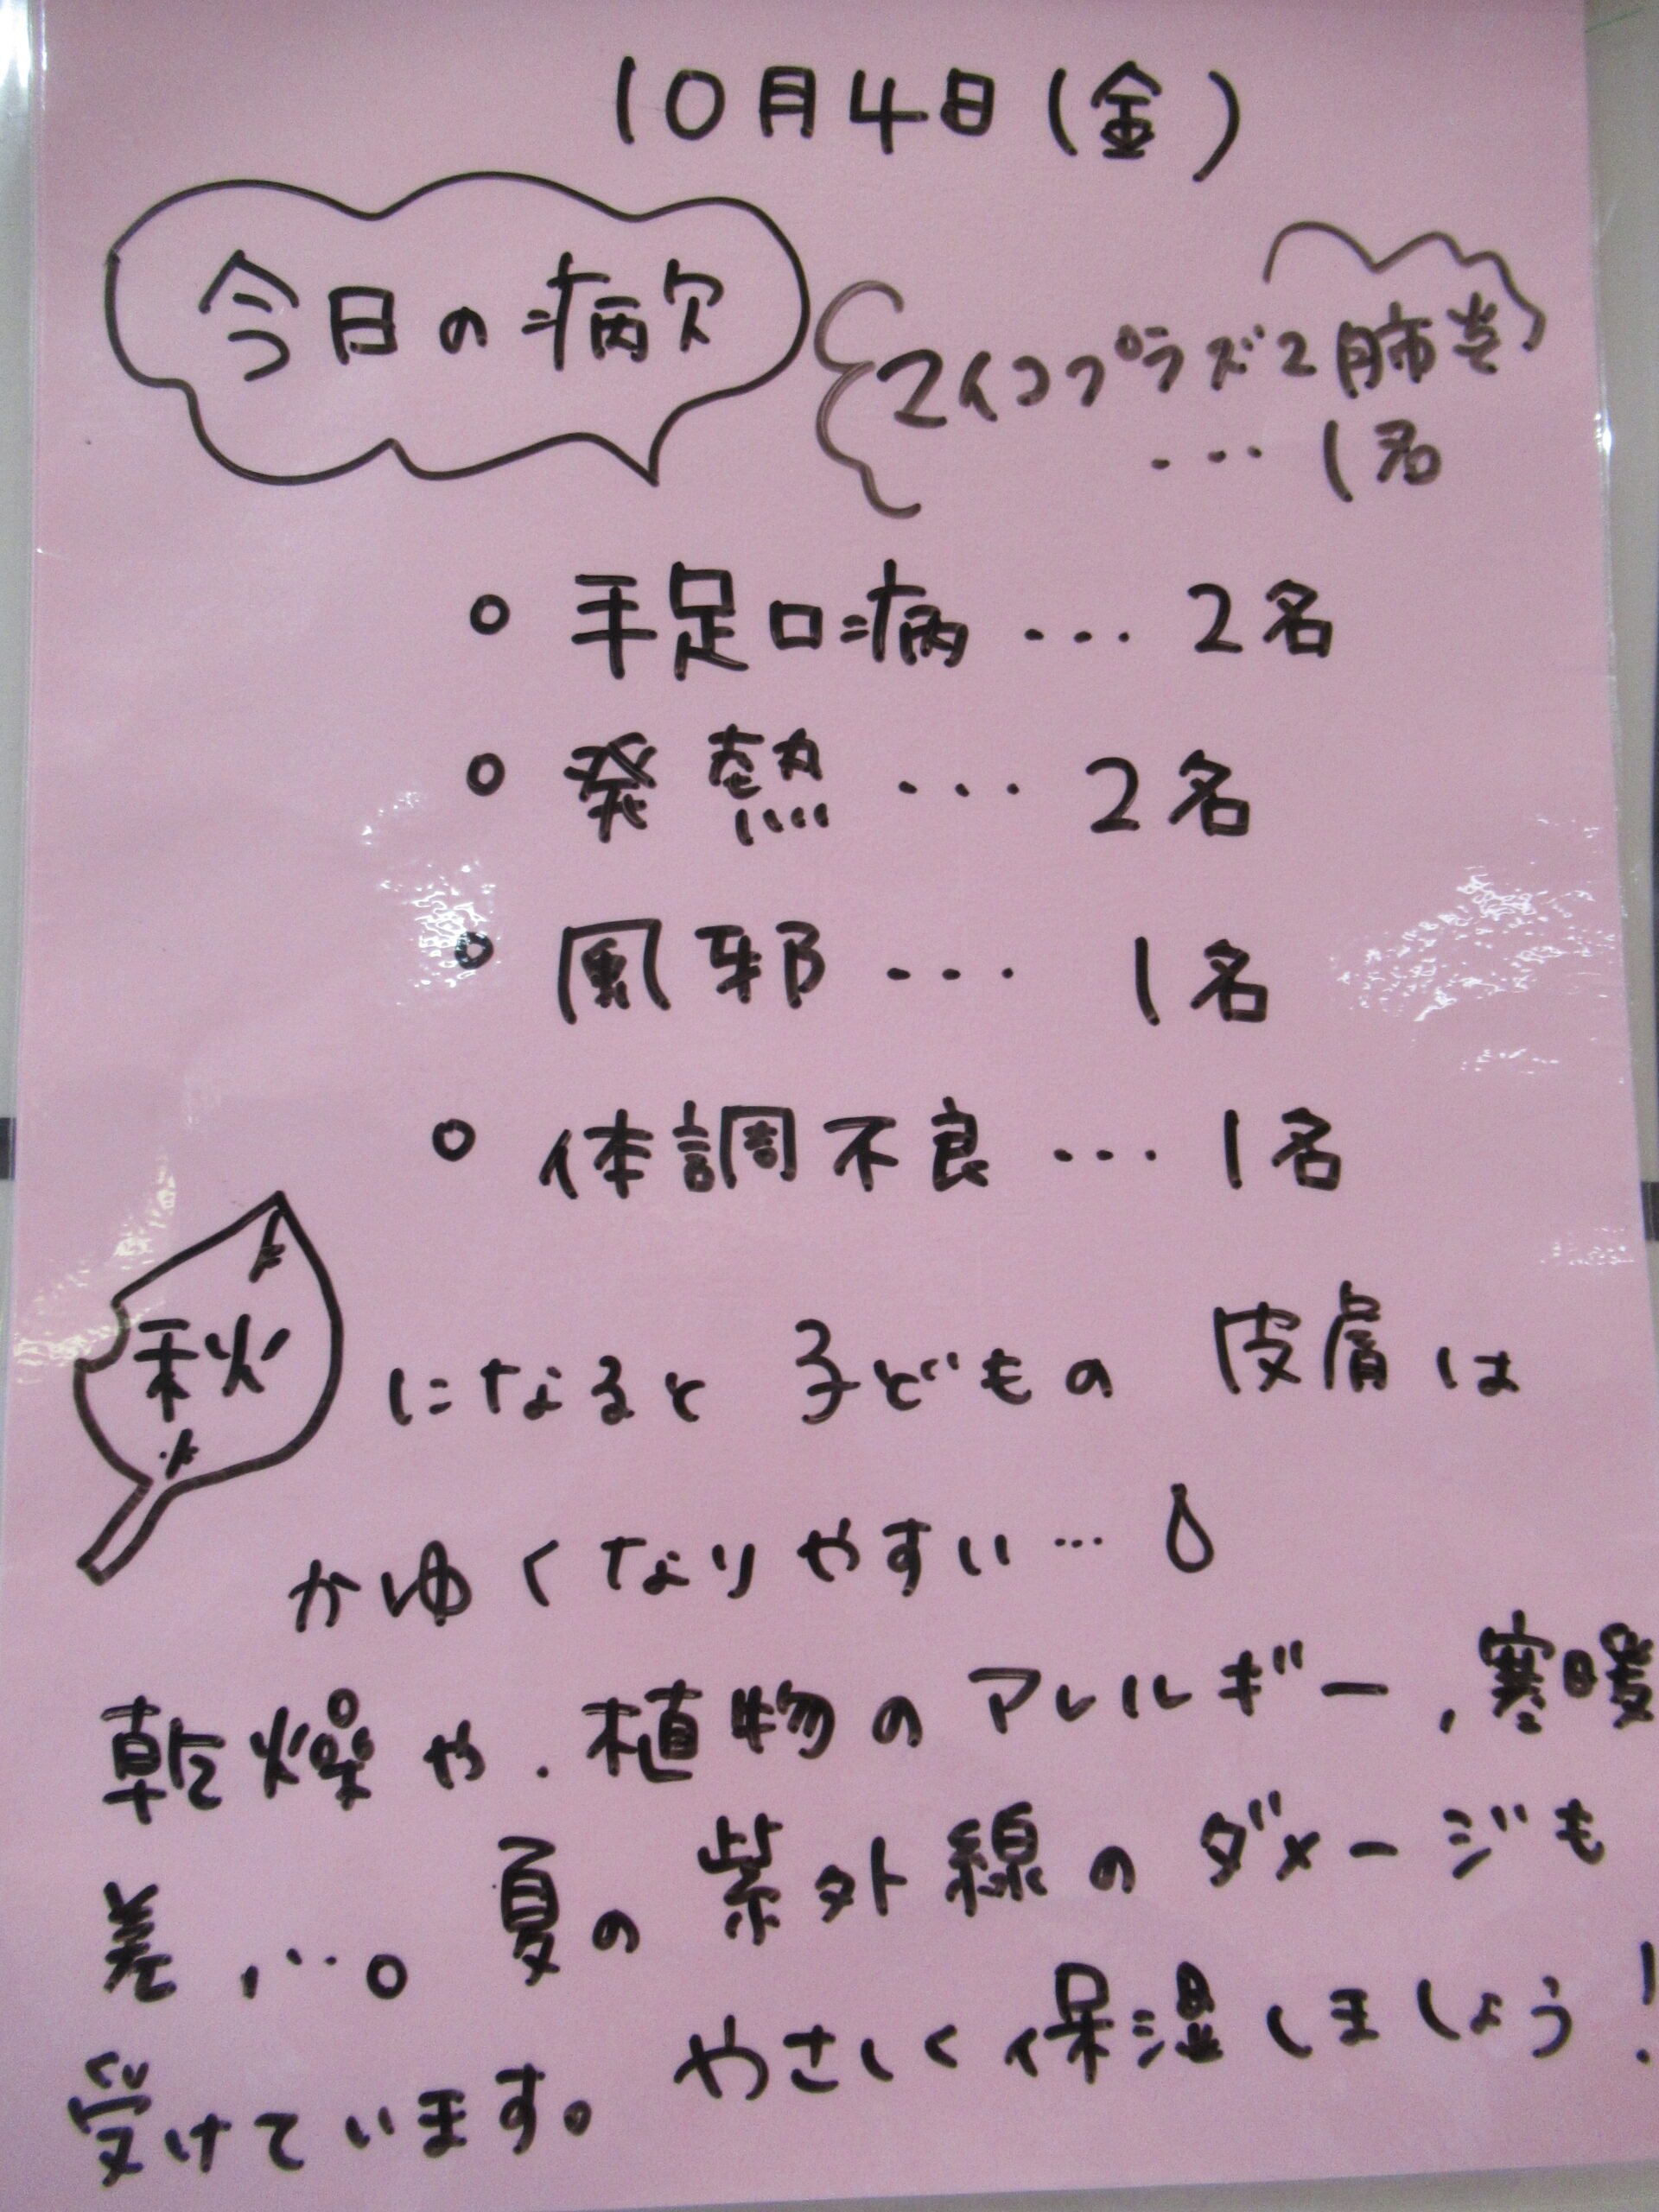 10月4日(金)
今日の病欠
マイコプラズマ肺炎
… 1名
○ 手足口病 … 2名
○ 発熱 … 2名
○ 風邪 … 1名
○ 体調不良 … 1名
秋になると 子どもの 皮膚は
かゆくなりやすい…
乾燥や、植物のアレルギー、寒暖
差、…。夏の紫外線のダメージも
受けています。やさしく保湿しましょう!